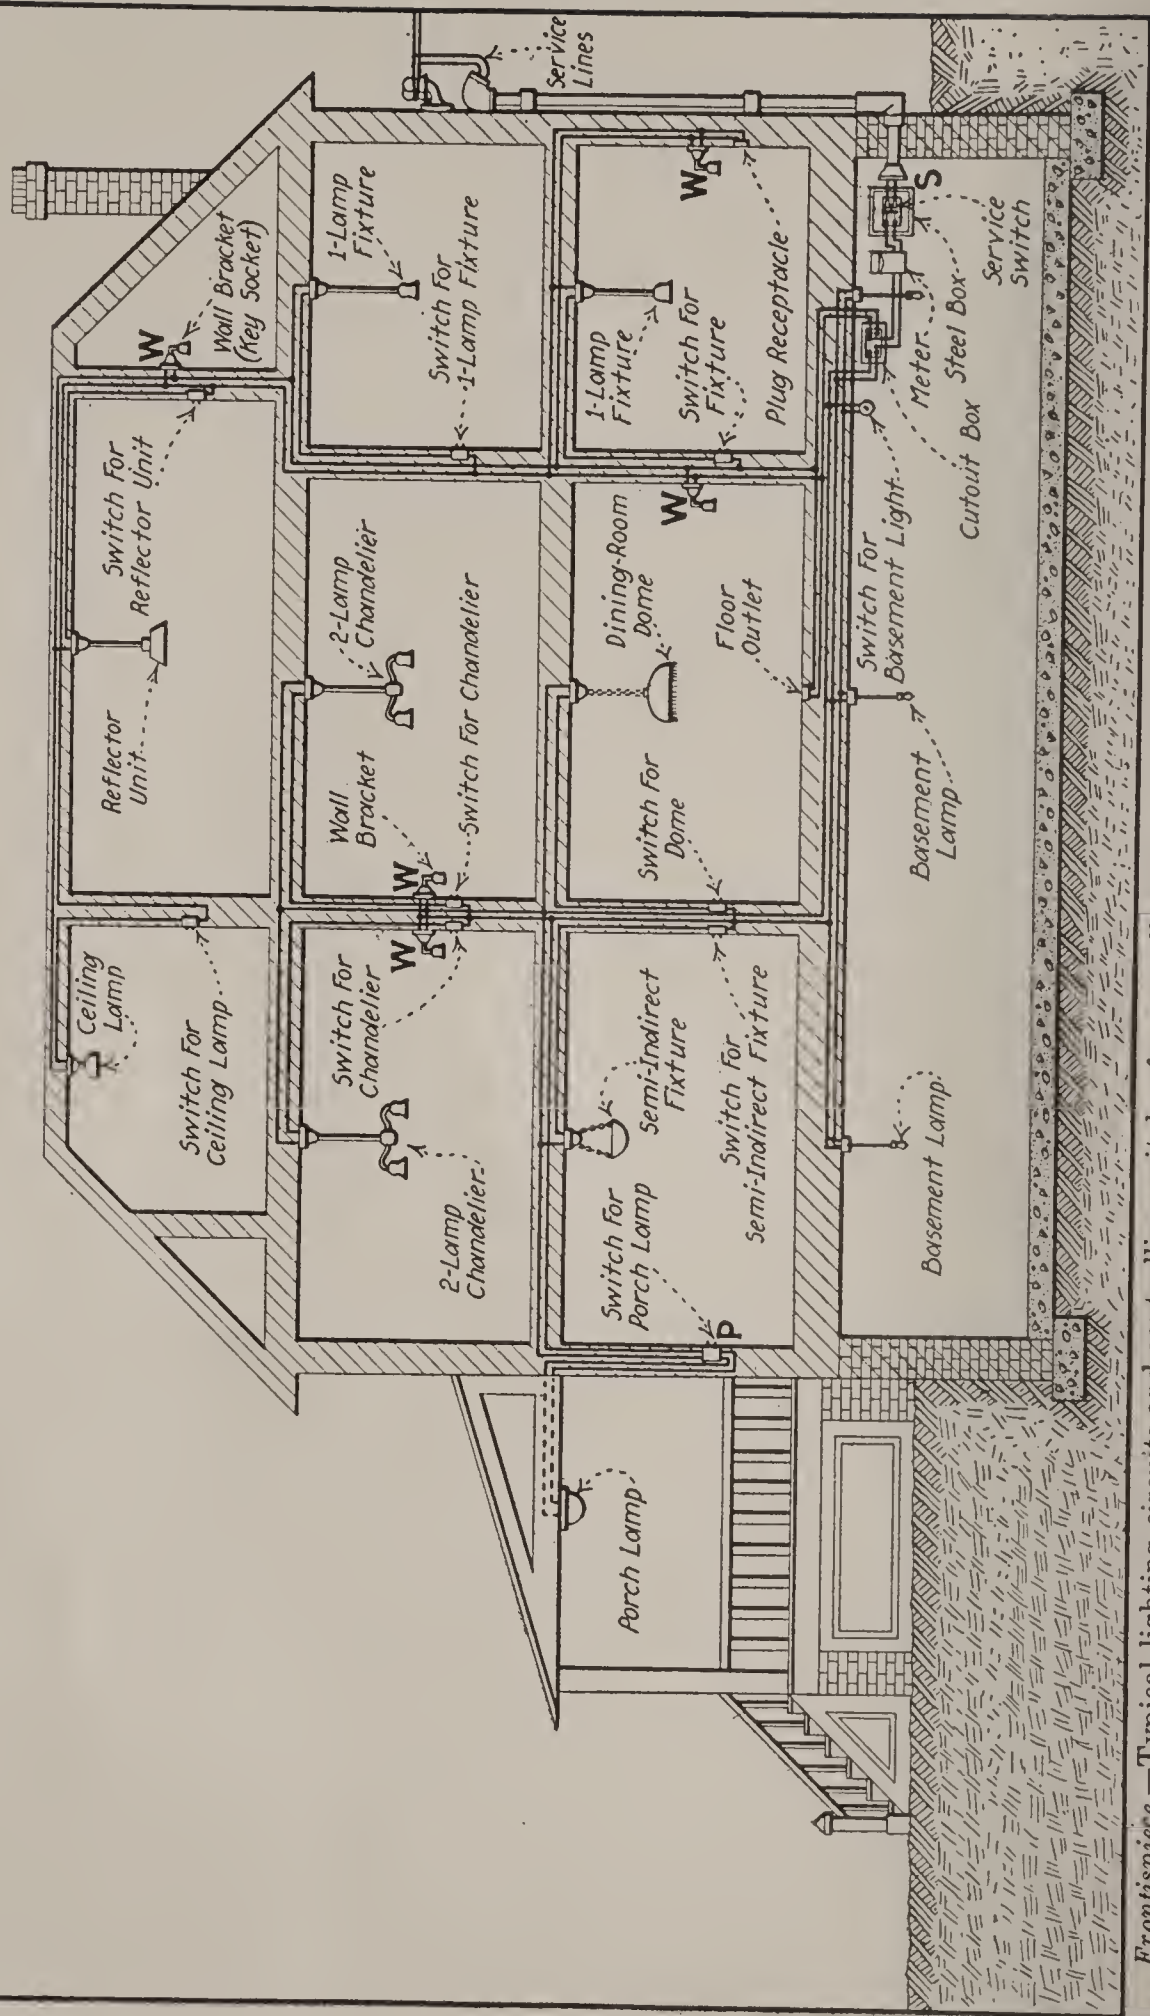 Ceiling
Lamp
Switch For
Ceiling Lamp
Reflector
Unit
Switch For
Reflector Unit
W
Wall Bracket
(Key Socket)
2-Lamp
Chandelier
Switch For
Chandelier
W
W
Wall
Bracket
Switch For Chandelier
2-Lamp
Chandelier
Switch For
1-Lamp Fixture
1-Lamp
Fixture
Service
Lines
Porch Lamp
Switch For
Porch Lamp
P
Semi-Indirect
Fixture
Switch For
Semi-Indirect Fixture
Switch For
Dome
Dining-Room
Dome
Floor
Outlet
W
1-Lamp
Fixture
Switch For
Fixture
Plug Receptacle
W
Basement Lamp
Basement
Lamp
Switch For
Basement Light
Cutout Box
Meter
Steel Box
Service
Switch
S
Frontispiece.—Typical lighting circuits and